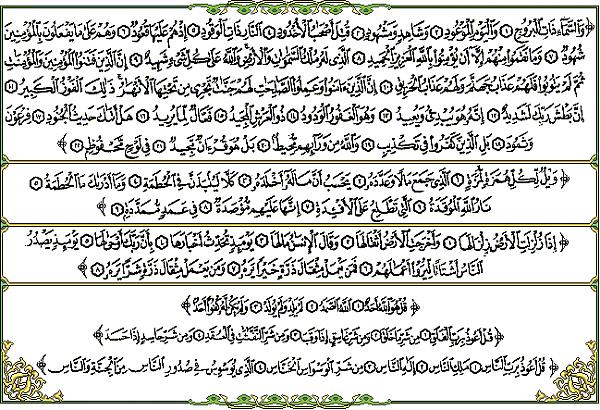 ﴿ وَالسَّمَاءِ ذَاتِ الْبُرُوجِ ١ وَالْيَوْمِ الْمَوْعُودِ ٢ وَشَاهِدٍ وَمَشْهُودٍ ٣ قُتِلَ أَصْحَابُ الْأُخْدُودِ ٤ النَّارِ ذَاتِ الْوَقُودِ ٥ إِذْ هُمْ عَلَيْهَا قُعُودٌ ٦ وَهُمْ عَلَىٰ مَا يَفْعَلُونَ بِالْمُؤْمِنِينَ
شُهُودٌ ٧ وَمَا نَقَمُوا مِنْهُمْ إِلَّا أَنْ يُؤْمِنُوا بِاللَّهِ الْعَزِيزِ الْحَمِيدِ ٨ الَّذِي لَهُ مُلْكُ السَّمَاوَاتِ وَالْأَرْضِ وَاللَّهُ عَلَىٰ كُلِّ شَيْءٍ شَهِيدٌ ٩ إِنَّ الَّذِينَ فَتَنُوا الْمُؤْمِنِينَ وَالْمُؤْمِنَاتِ
ثُمَّ لَمْ يَتُوبُوا فَلَهُمْ عَذَابُ جَهَنَّمَ وَلَهُمْ عَذَابُ الْحَرِيقِ ١٠ إِنَّ الَّذِينَ آمَنُوا وَعَمِلُوا الصَّالِحَاتِ لَهُمْ جَنَّاتٌ تَجْرِي مِنْ تَحْتِهَا الْأَنْهَارُ ذَٰلِكَ الْفَوْزُ الْكَبِيرُ ١١
إِنَّ بَطْشَ رَبِّكَ لَشَدِيدٌ ١٢ إِنَّهُ هُوَ يُبْدِئُ وَيُعِيدُ ١٣ وَهُوَ الْغَفُورُ الْوَدُودُ ١٤ ذُو الْعَرْشِ الْمَجِيدُ ١٥ فَعَّالٌ لِمَا يُرِيدُ ١٦ هَلْ أَتَاكَ حَدِيثُ الْجُنُودِ ١٧ فِرْعَوْنَ
وَثَمُودَ ١٨ بَلِ الَّذِينَ كَفَرُوا فِي تَكْذِيبٍ ١٩ وَاللَّهُ مِنْ وَرَائِهِمْ مُحِيطٌ ٢٠ بَلْ هُوَ قُرْآنٌ مَجِيدٌ ٢١ فِي لَوْحٍ مَحْفُوظٍ ٢٢ ﴾
﴿ وَيْلٌ لِكُلِّ هُمَزَةٍ لُمَزَةٍ ١ الَّذِي جَمَعَ مَالًا وَعَدَّدَهُ ٢ يَحْسَبُ أَنَّ مَالَهُ أَخْلَدَهُ ٣ كَلَّا لَيُنْبَذَنَّ فِي الْحُطَمَةِ ٤ وَمَا أَدْرَاكَ مَا الْحُطَمَةُ ٥
نَارُ اللَّهِ الْمُوقَدَةُ ٦ الَّتِي تَطَّلِعُ عَلَى الْأَفْئِدَةِ ٧ إِنَّهَا عَلَيْهِمْ مُؤْصَدَةٌ ٨ فِي عَمَدٍ مُمَدَّدَةٍ ٩ ﴾
﴿ إِذَا زُلْزِلَتِ الْأَرْضُ زِلْزَالَهَا ١ وَأَخْرَجَتِ الْأَرْضُ أَثْقَالَهَا ٢ وَقَالَ الْإِنْسَانُ مَا لَهَا ٣ يَوْمَئِذٍ تُحَدِّثُ أَخْبَارَهَا ٤ بِأَنَّ رَبَّكَ أَوْحَىٰ لَهَا ٥ يَوْمَئِذٍ يَصْدُرُ
النَّاسُ أَشْتَاتًا لِيُرَوْا أَعْمَالَهُمْ ٦ فَمَنْ يَعْمَلْ مِثْقَالَ ذَرَّةٍ خَيْرًا يَرَهُ ٧ وَمَنْ يَعْمَلْ مِثْقَالَ ذَرَّةٍ شَرًّا يَرَهُ ٨ ﴾
﴿ قُلْ هُوَ اللَّهُ أَحَدٌ ١ اللَّهُ الصَّمَدُ ٢ لَمْ يَلِدْ وَلَمْ يُولَدْ ٣ وَلَمْ يَكُنْ لَهُ كُفُوًا أَحَدٌ ﴾
﴿ قُلْ أَعُوذُ بِرَبِّ الْفَلَقِ ١ مِنْ شَرِّ مَا خَلَقَ ٢ وَمِنْ شَرِّ غَاسِقٍ إِذَا وَقَبَ ٣ وَمِنْ شَرِّ النَّفَّاثَاتِ فِي الْعُقَدِ ٤ وَمِنْ شَرِّ حَاسِدٍ إِذَا حَسَدَ ﴾
﴿ قُلْ أَعُوذُ بِرَبِّ النَّاسِ ١ مَلِكِ النَّاسِ ٢ إِلَٰهِ النَّاسِ ٣ مِنْ شَرِّ الْوَسْوَاسِ الْخَنَّاسِ ٤ الَّذِي يُوَسْوِسُ فِي صُدُورِ النَّاسِ مِنَ الْجِنَّةِ وَالنَّاسِ ﴾